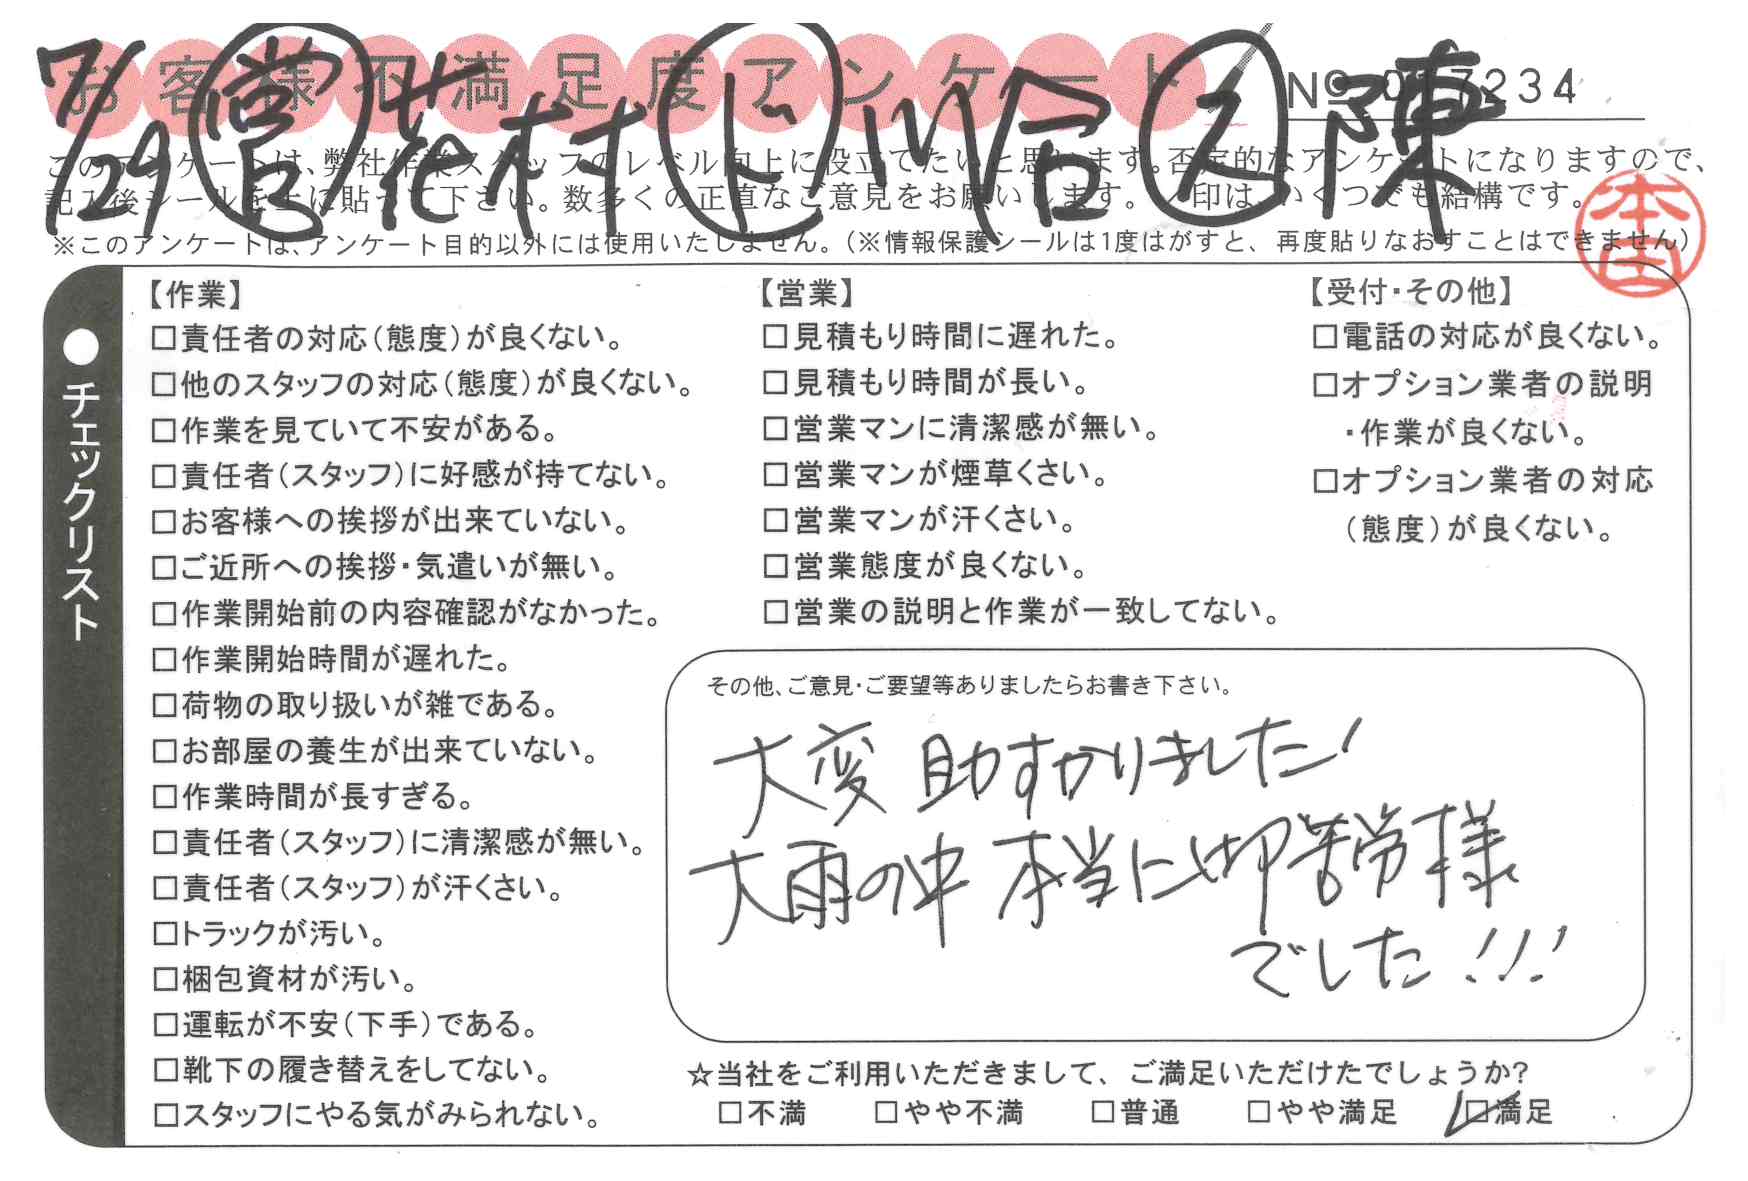 お客様不満足度アンケート
7/29 営 花村 ド 川合 ス 陳
このアンケートは、弊社作業スタッフのレベル向上に役立てたいと思います。否定的なアンケートになりますので、
記入後シールを上に貼って下さい。数多くの正直なご意見をお願いします。✓印は、いくつでも結構です。
※このアンケートは、アンケート目的以外には使用いたしません。（※情報保護シールは1度はがすと、再度貼りなおすことはできません）
チェックリスト
【作業】
□責任者の対応（態度）が良くない。
□他のスタッフの対応（態度）が良くない。
□作業を見ていて不安がある。
□責任者（スタッフ）に好感が持てない。
□お客様への挨拶が出来ていない。
□ご近所への挨拶・気遣いが無い。
□作業開始前の内容確認がなかった。
□作業開始時間が遅れた。
□荷物の取り扱いが雑である。
□お部屋の養生が出来ていない。
□作業時間が長すぎる。
□責任者（スタッフ）に清潔感が無い。
□責任者（スタッフ）が汗くさい。
□トラックが汚い。
□梱包資材が汚い。
□運転が不安（下手）である。
□靴下の履き替えをしてない。
□スタッフにやる気がみられない。
【営業】
□見積もり時間に遅れた。
□見積もり時間が長い。
□営業マンに清潔感が無い。
□営業マンが煙草くさい。
□営業マンが汗くさい。
□営業態度が良くない。
□営業の説明と作業が一致してない。
【受付・その他】
□電話の対応が良くない。
□オプション業者の説明
・作業が良くない。
□オプション業者の対応
（態度）が良くない。
その他、ご意見・ご要望等ありましたらお書き下さい。
大変助すかりました！
大雨の中本当に御苦労様
でした！！！
☆当社をご利用いただきまして、ご満足いただけたでしょうか？
□不満 □やや不満 □普通 □やや満足 ☑満足